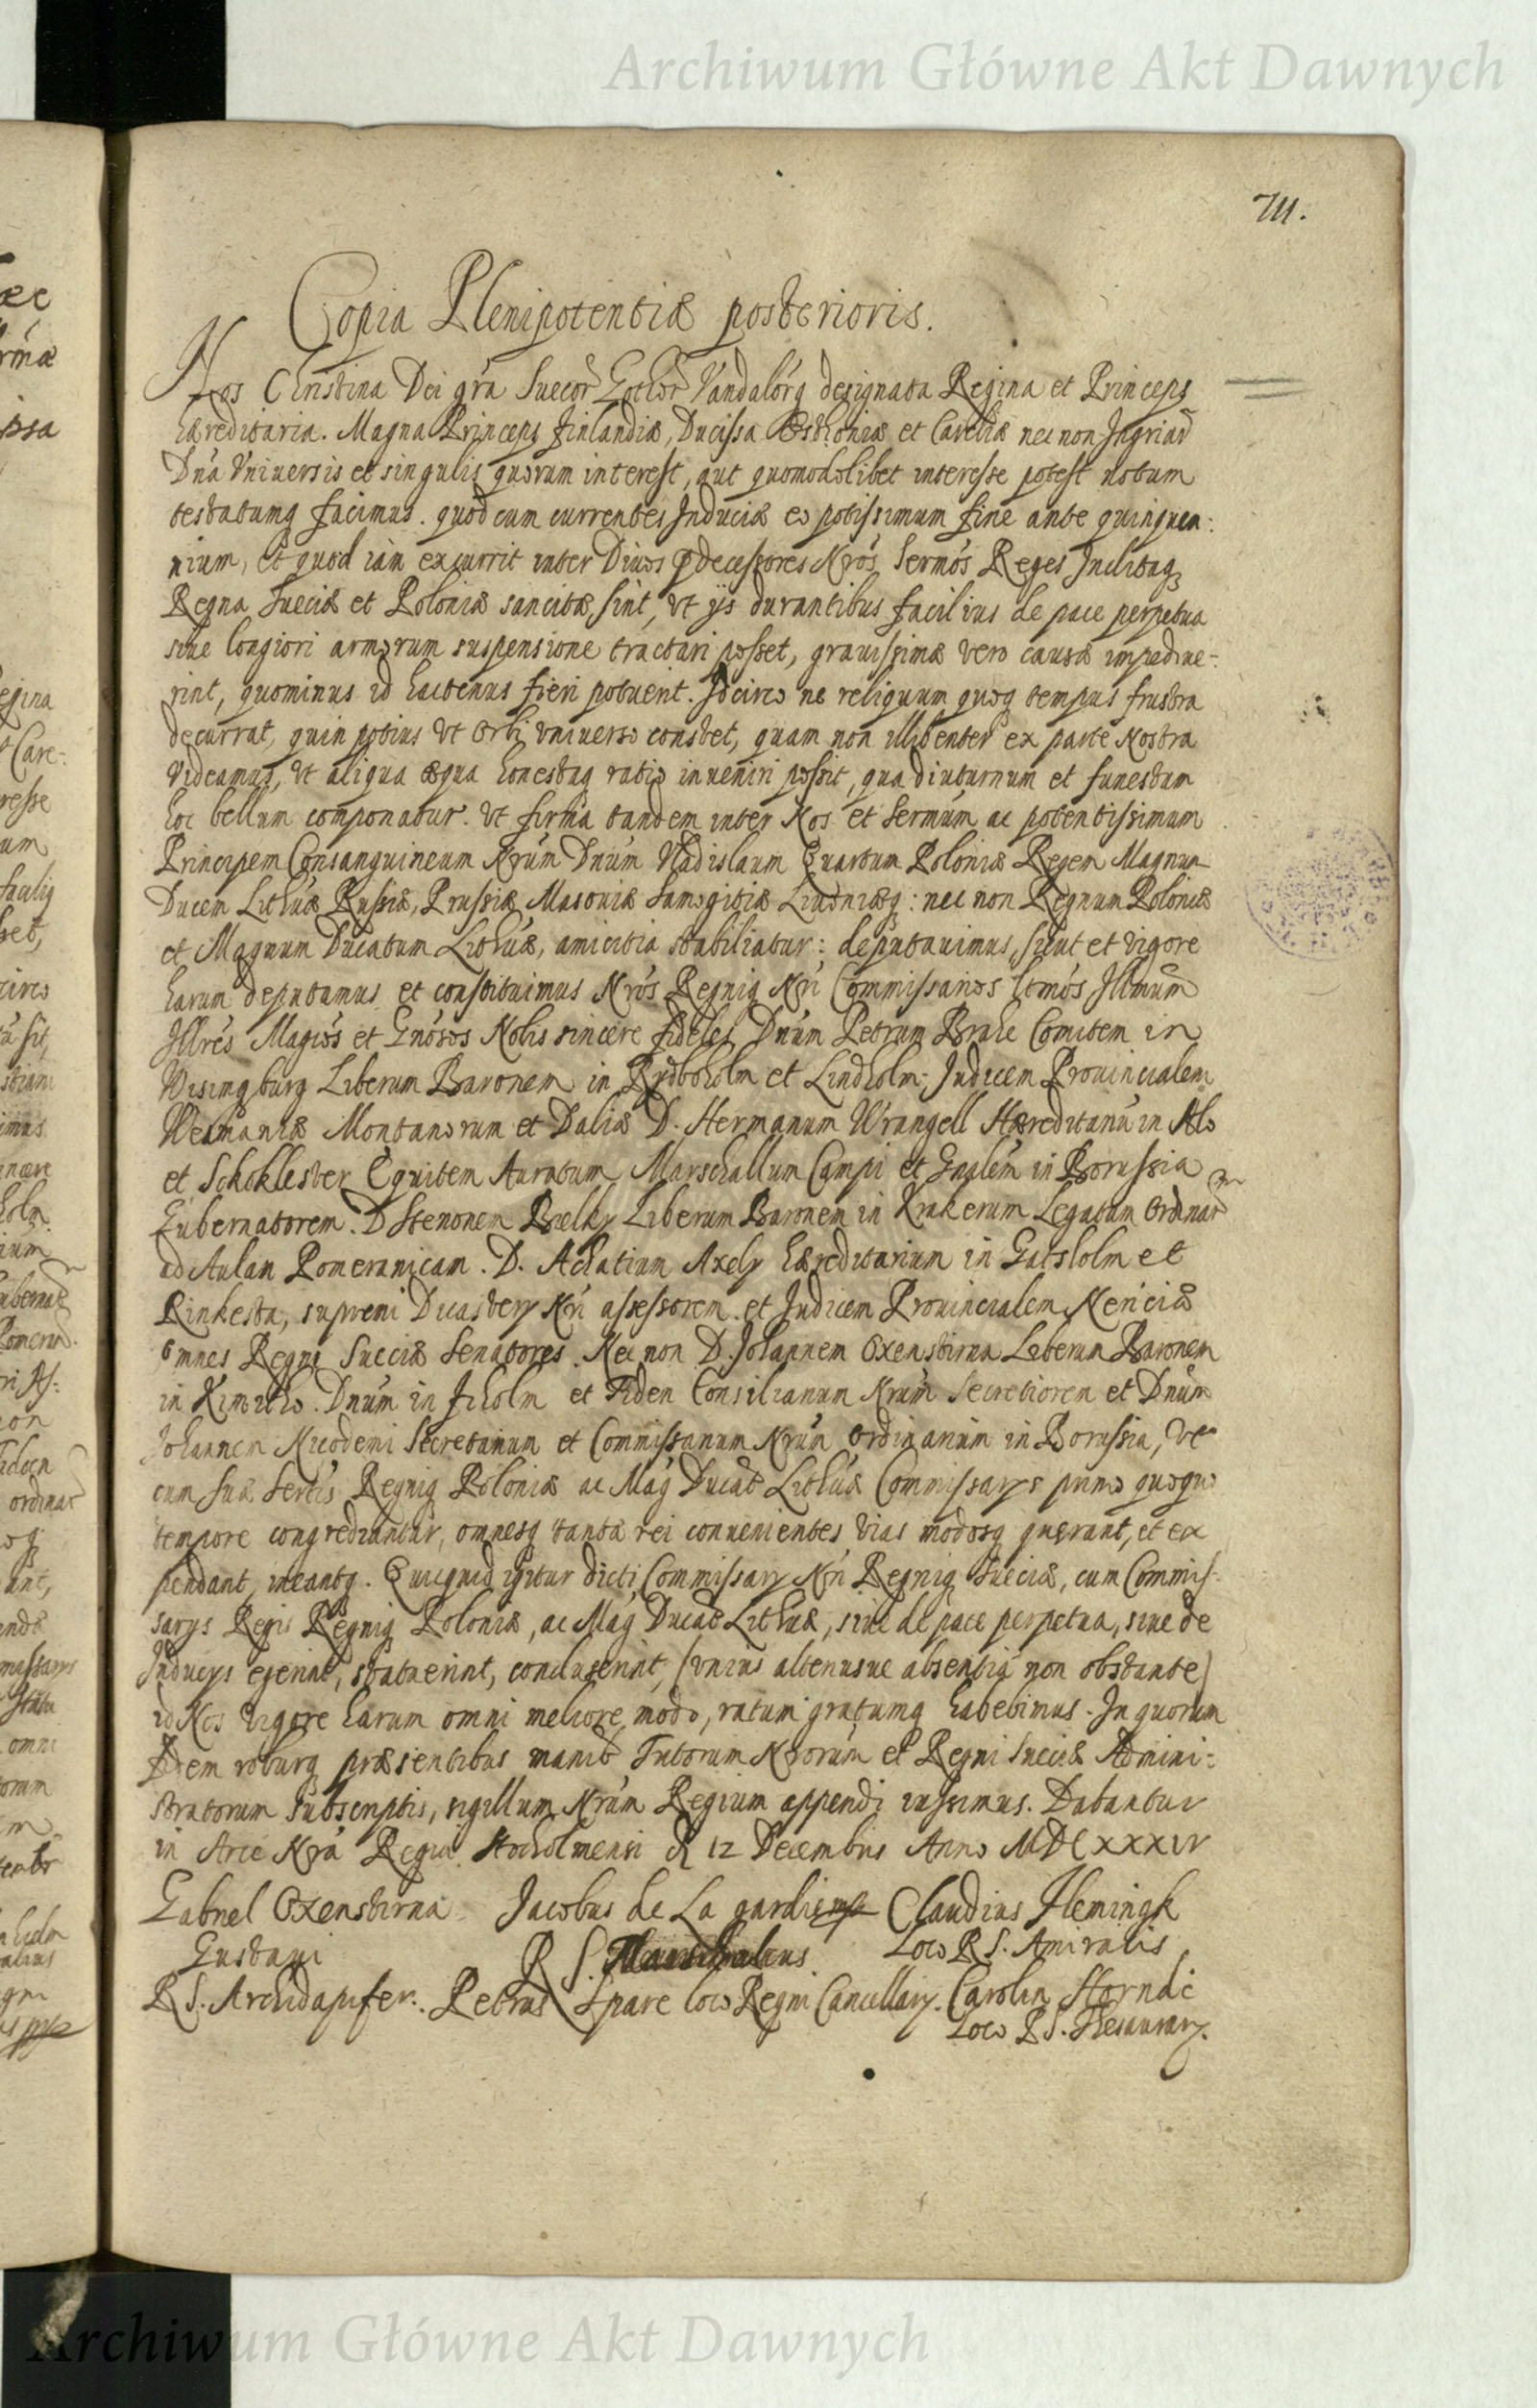 Archiwum Główne Akt Dawnych
711.
Copia Plenipotentiæ posterioris.
Nos Christina Dei gra Suecor Gothor Vandalorq designata Regina et Princeps
hæreditaria. Magna Princeps Finlandiæ, Ducissa Esthoniæ et Careliæ nec non Ingriæ
Dna Vniuersis et singulis quorum interest, aut quomodolibet interesse potest notum
testatumq facimus. quod cum currentes Induciæ eo potissimum fine ante quinquen:
nium, et quod iam excurrit inter Diuos prdecessores Nros Sermos Reges Inclitaq
Regna Sueciæ et Poloniæ sancitæ sint, vt ijs durantibus facilius de pace perpetua
siue longiori armorum suspensione tractari posset, grauissimæ vero causæ impediue-
rint, quominus id hactenus fieri potuerit. Idcirco ne reliquum quoq tempus frustra
decurrat, quin potius vt Orbi vniuerso constet, quam non illibenter ex parte Nostra
videamus, vt aliqua æqua honestaq ratio inueniri possit, qua diuturnum et funestum
hoc bellum componatur. vt firma tandem inter Nos et Sermum ac potentissimum
Principem Consanguineum Nrum Dnum Vladislaum Quartum Poloniæ Regem Magnum
Ducem Lithuæ Russiæ, Prussiæ Masouiæ Samogitiæ Liuoniæq: nec non Regnum Poloniæ
et Magnum Ducatum Lithuæ, amicitia stabiliatur: deputauimus, sicut et vigore
harum deputamus et constituimus Nros Regniq Nri Commissarios Illmum
Illres Magcos et Gnosos Nobis sincere fideles Dnum Petrum Brahe Comitem in
Wisingburg Liberum Baronem in Rydboholm et Lindholm: Judicem Prouincialem
Wesmaniæ Montanorum et Daliæ D. Hermanum Wrangell Hæreditariu in Alo
et Schoklester Equitem Auratum Marschallum Campi et Gnalem in Borussia
Gubernatorem. D Stenonem Bielky Liberum Baronem in Krakerum Legatum Ordinar
ad Aulam Pomeranicam. D. Achatium Axely hæreditarium in Gatsholm et
Rinkesta, supremi Dicastery Nri assessorem et Judicem Prouincialem Nericiæ
omnes Regni Sueciæ Senatores. Nec non D. Johannem Oxenstirna Liberum Baronem
in Kimitho. Dnum in Fiholm et Tiden Consiliarium Nrum Secretiorem et Dnum
Johannem Nicodemi Secretarium et Commissarium Nrum Ordinarium in Borussia, vt
cum Suæ Sertis Regniq Poloniæ ac Mag Ducat Lithuæ Commissarys primo quoquo
tempore congrediantur, omnesq tantæ rei conuenientes vias modosq quærant, et ex
pendant, ineantq. Quicquid igitur dicti Commissary Nri Regniq Sueciæ, cum Commis-
sarys Regis Regniq Poloniæ, ac Mag Ducat Lithuæ, siue de pace perpetua, siue de
Inducys egerint, statuerint, concluserint, (vnius alteriusue absentia non obstante)
id Nos vigore harum omni meliore modo, ratum gratumq habebimus. In quorum
fidem roburq præsentibus manib Tutorum Nrorum et Regni Sueciæ Admini:
stratorum subscriptis, sigillum Nrum Regium appendi iussimus. Dabantur
in Arce Nra Regia Stocholmensi d 12 Decembris Anno MDCXXXIV
Gabriel Oxenstirna Jacobus de La gardie mp Claudius Flemingk
Gustaui R S. Marschalcus. Loco R S. Amiralis
R S. Archidapifer. Petrus Spare loco Regni Cancellary. Carolin Horndc
Loco R S. Thesaurary.
Archiwum Główne Akt Dawnych